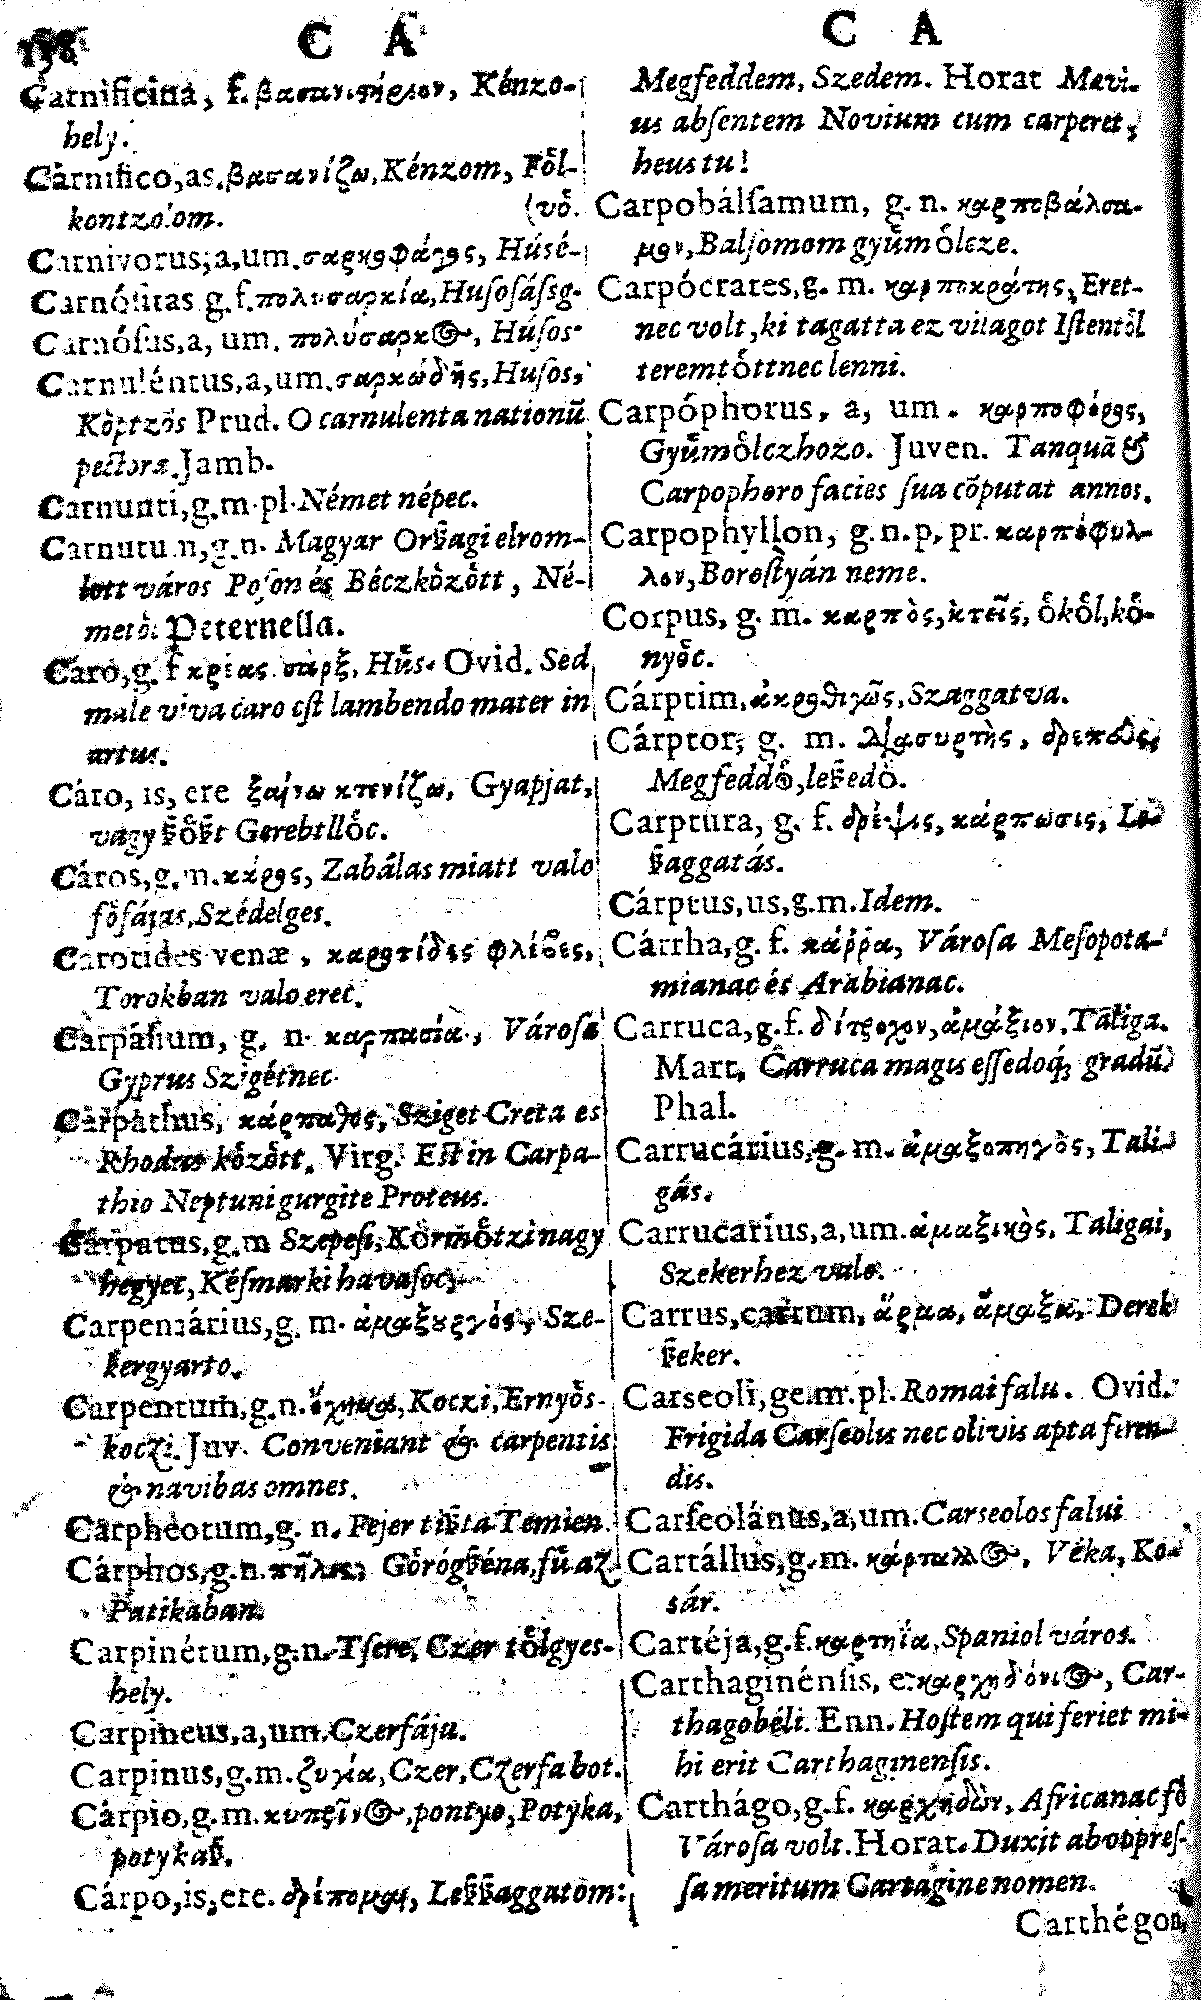 158 C A
Carnificina, f. βασανιστήριον, Kénzo-
hely.
Carnifico, as. βασανίζω, Kénzom, Fo̔l-
kontzolom. (vo̔.
Carnivorus, a, um. σαρκοφάγος, Húsé-
Carnósitas g. f. πολυσαρκία, Husoſáſsg.
Carnósus, a, um. πολύσαρκος, Húſos
Carnuléntus, a, um. σαρκώδης, Huſos,
Ko̔ptzo̔s Prud. O carnulenta nationũ
pectora. Jamb.
Carnunti, g. m. pl. Német népec.
Carnutum, g. n. Magyar Orſzagi elrom-
lott város Poſon és Béczko̔zo̔tt, Né-
meto̔l Peternella.
Caro, g. f κρέας σαρξ, Hűs. Ovid. Sed
male viva caro eſt lambendo mater in
artus.
Cáro, is, ere ξαίνω κτενίζω, Gyapjat,
vagy ſzo̔ſzt Gerebello̔c.
Cáros, g. m. κάρος, Zabálas miatt valo
fo̔fájas, Szédelges.
Carotides venæ, καρωτίδες φλέβες,
Torokban valo erec.
Carpásium, g. n. καρπασία, Városa
Gyprus Szigétnec.
Carpathus, κάρπαθος, Sziget Creta es
Rhodus ko̔zo̔tt. Virg. Eſt in Carpa-
thio Neptuni gurgite Proteus.
Carpatus, g. m Szepeſi, Ko̔rmo̔tzi nagy
hegyec, Késmarki havaſoc,
Carpentárius, g. m. ἁμαξουργός, Sze-
kergyarto.
Carpentum, g. n. ὄχημα, Koczi, Ernyo̔s-
koczi. Juv. Conveniant & carpentis
& navibas omnes.
Carpheotum, g. n. Fejer tiſzta Temien
Cárphos, g. n. Go̔ro̔gſzéna, fű az
Patikaban.
Carpinétum, g. n. Tſere, Czer to̔lgyes-
hely.
Carpineus, a, um. Czerfája.
Carpinus, g. m. ζυγία, Czer, Czerfa bot.
Cárpio, g. m. κυπρῖνος, pontyo, Potyka,
potykaſz.
Cárpo, is, ere. δρέπομαι, Leſzſzaggatom:
C A
Megfeddem, Szedem. Horat Mævi-
us abſentem Novium cum carperet,
heus tu!
Carpobálſamum, g. n. καρποβάλσα-
μον, Balſomom gyűmo̔lcze.
Carpócrates, g. m. καρποκράτης, Eret-
nec volt, ki tagatta ez vilagot Iſtento̔l
teremto̔ttnec lenni.
Carpóphorus, a, um. καρποφόρος,
Gyűmo̔lczhozo. Juven. Tanquã &
Carpophoro facies ſua cõputat annos.
Carpophyllon, g. n. p. pr. καρπόφυλ-
λον, Boroſtyán neme.
Corpus, g. m. καρπὸς, κτεὶς, o̔ko̔l, ko̔-
nyo̔c.
Cárptim, ἀκροθιγῶς, Szaggatva.
Cárptor, g. m. διασυρτὴς, δρεπεὺς,
Megfeddo̔, leſzedo̔.
Carptura, g. f. δρέψις, κάρπωσις, Le-
ſzaggatás.
Cárptus, us, g. m. Idem.
Cárrha, g. f. κάῤῥα, Városa Meſopota-
mianac és Arabianac.
Carruca, g. f. δίτροχον, ἁμάξιον, Taliga.
Mart. Carruca magis eſſedoq; gradũ.
Phal.
Carrucárius, g. m. ἁμαξοπηγὸς, Tali-
gás.
Carrucarius, a, um. ἁμαξικὸς, Taligai,
Szekerhez valo.
Carrus, carrum, ἅρμα, ἅμαξα, Derek
ſzeker.
Carseoli, ge. m. pl. Romai falu. Ovid.
Frigida Carſeolus nec olivis apta feren-
dis.
Carſeolánus, a, um. Carseolos falui
Cartállus, g. m. κάρταλλος, Véka, Ko-
sár.
Cartéja, g. f. καρτηία, Spaniol város.
Carthaginénsis, e. καρχηδόνιος, Car-
thagobéli. Enn. Hoſtem qui feriet mi-
hi erit Carthaginenſis.
Carthágo, g. f. καρχηδὼν, Africanac fo̔
Városa volt. Horat. Duxit ab oppreſ-
ſa meritum Cartagine nomen.
Carthégon,